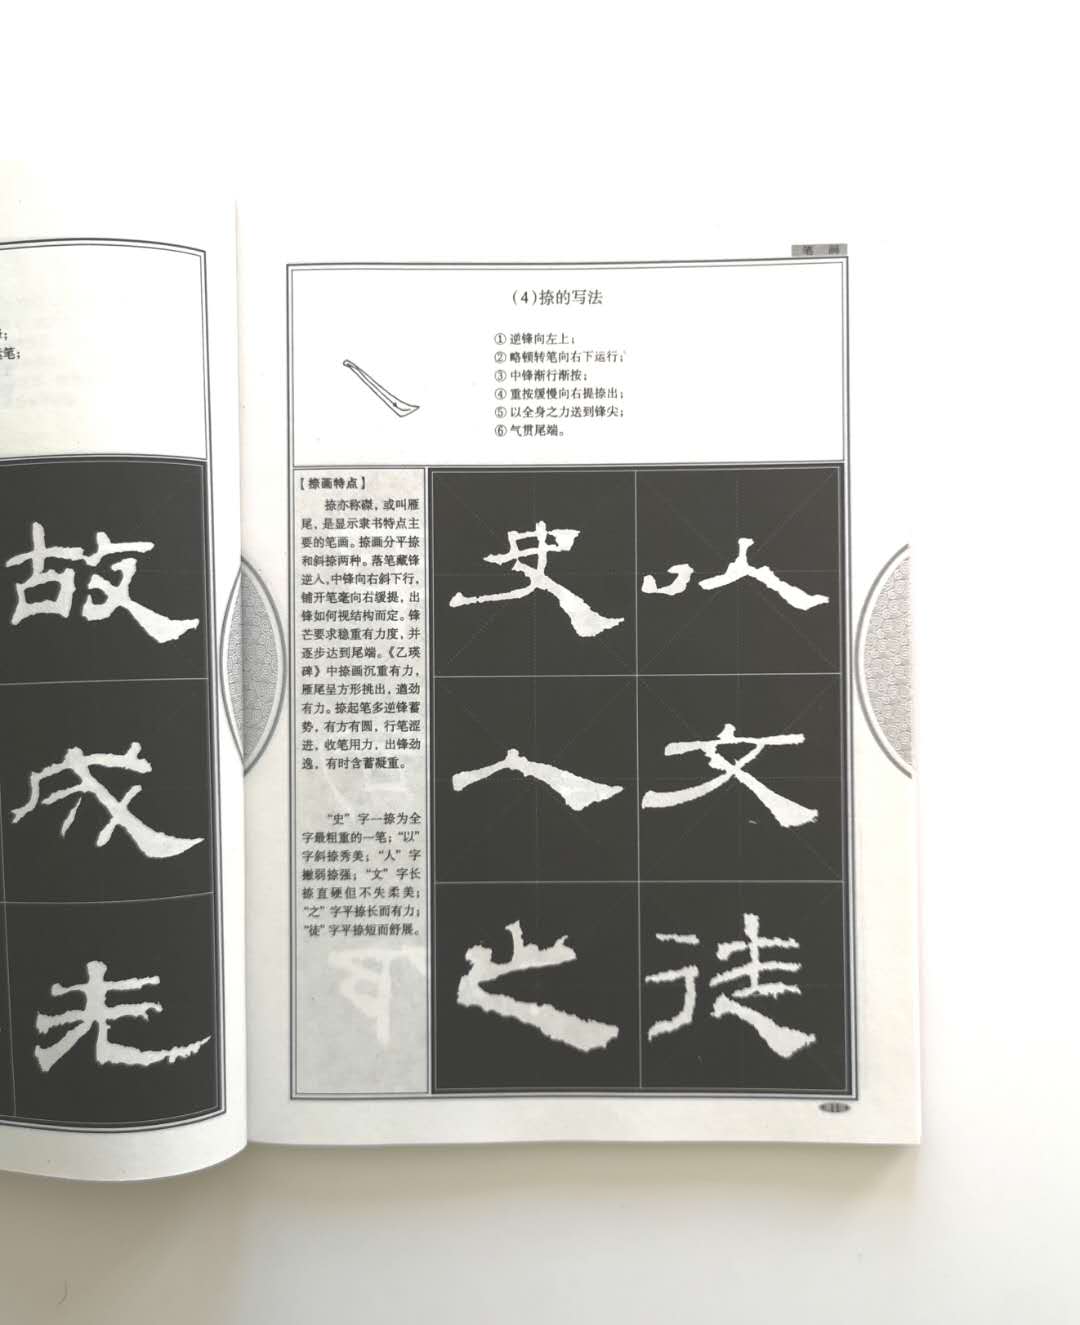 笔；
故
成
先
笔画
（4）捺的写法
① 逆锋向左上；
② 略顿转笔向右下运行；
③ 中锋渐行渐按；
④ 重按缓慢向右提捺出；
⑤ 以全身之力送到锋尖；
⑥ 气贯尾端。
【捺画特点】
捺亦称磔，或叫雁
尾，是显示隶书特点主
要的笔画。捺画分平捺
和斜捺两种。落笔藏锋
逆入，中锋向右斜下行，
铺开笔毫向右缓提，出
锋如何视结构而定。锋
芒要求稳重有力度，并
逐步达到尾端。《乙瑛
碑》中捺画沉重有力，
雁尾呈方形挑出，遒劲
有力。捺起笔多逆锋蓄
势，有方有圆，行笔涩
进，收笔用力，出锋劲
逸，有时含蓄凝重。
“史”字一捺为全
字最粗重的一笔；“以”
字斜捺秀美；“人”字
撇弱捺强；“文”字长
捺直硬但不失柔美；
“之”字平捺长而有力；
“徒”字平捺短而舒展。
史 以
人 文
之 徒
11